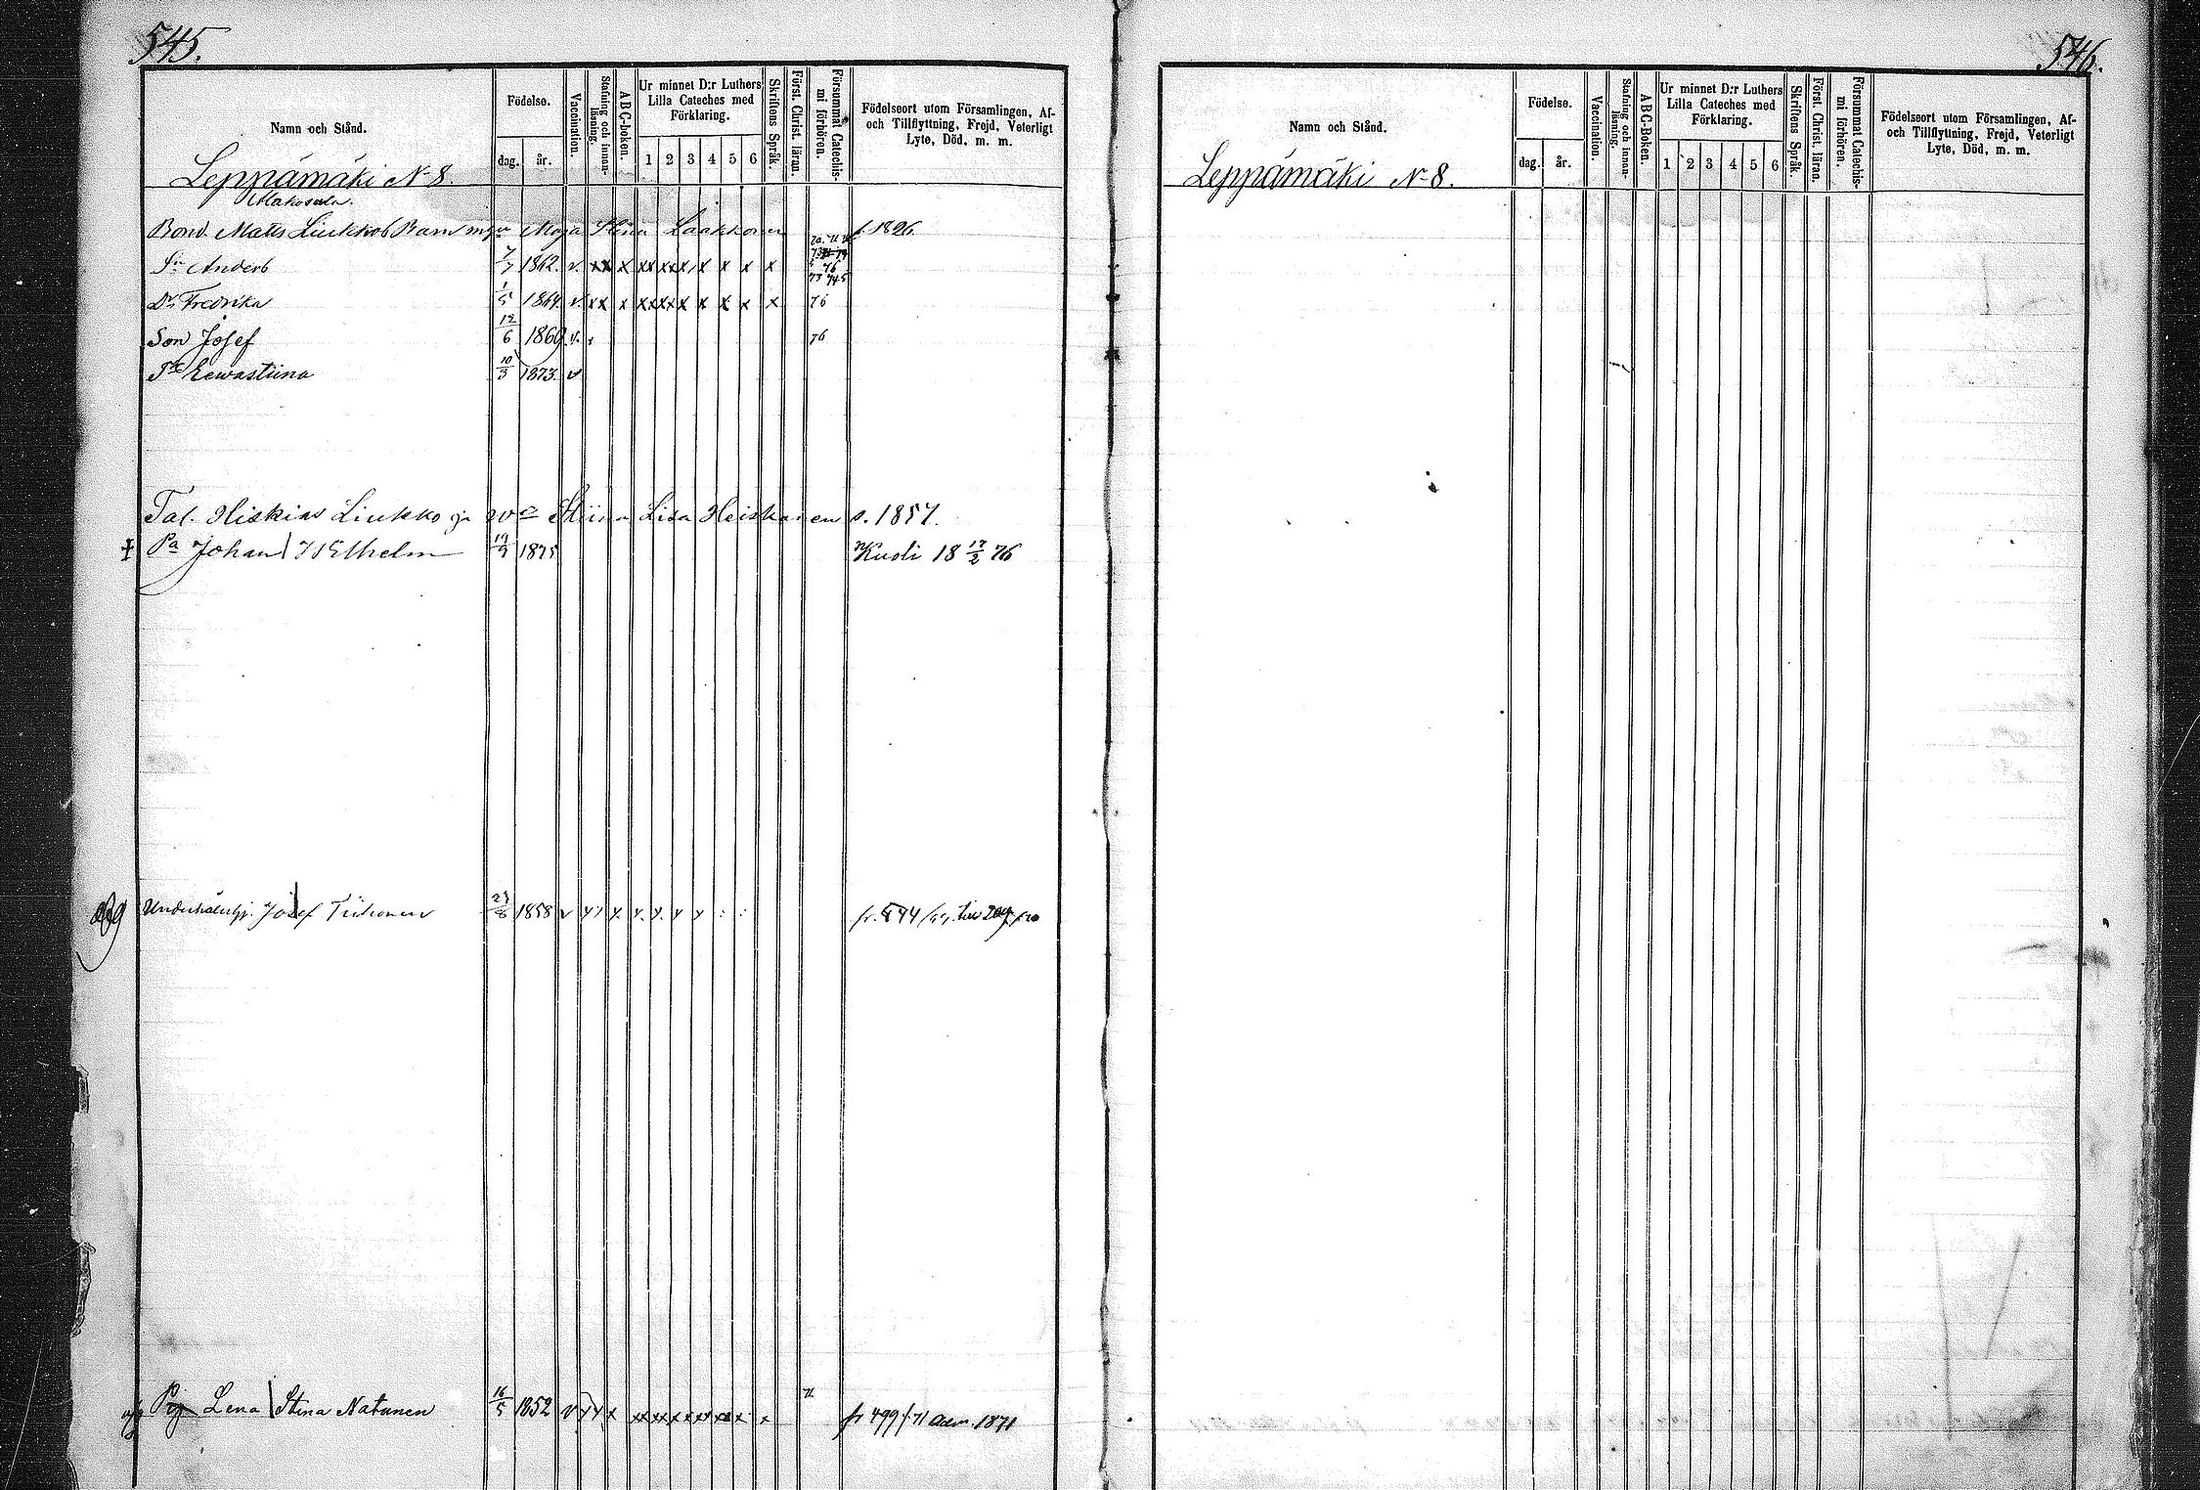 545.
Namn och Stånd.
Födelse.
dag. år.
Vaccination.
Stafning och innan-läsning.
ABC-boken.
Ur minnet D:r Luthers
Lilla Cateches med
Förklaring.
1 2 3 4 5 6
Skriftens Språk.
Först. Christ. läran.
Försummat Catechis-
mi förhören.
Födelseort utom Församlingen, Af-
och Tillflyttning, Frejd, Veterligt
Lyte, Död, m. m.
Leppämäki N 8.
Bond. Matts Liukkos Barn m Maja Stina Laakkonen f. 1826
Sn Anders 7/7 1862. v. xx x xx xx x x x x x
Dr Fredrika 1/5 1864. v. xx x xx xx x x x x x 76
Son Josef 12/6 1869 v. 76
Eewastiina 10/3 1873. v
Tal. Hiskias Liukko ja wo Stiina Lisa Heiskanen s. 1857.
Pa Johan Wilhelm 19/9 1875 Kuoli 18 17/2 76
Josef Tiihonen 1858 v
Lena Stina Natunen 16/5 1852 v fr 499/71 adm. 1871
546.
Namn och Stånd.
Födelse.
dag. år.
Vaccination.
Stafning och innan-läsning.
ABC-Boken.
Ur minnet D:r Luthers
Lilla Cateches med
Förklaring.
1 2 3 4 5 6
Skriftens Språk.
Först. Christ. läran.
Försummat Catechis-
mi förhören.
Födelseort utom Församlingen, Af-
och Tillflyttning, Frejd, Veterligt
Lyte, Död, m. m.
Leppämäki N 8.